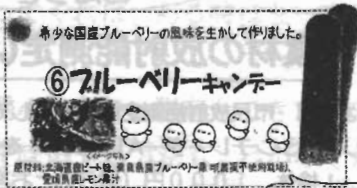 希少な国産ブルーベリーの風味を生かして作りました。
⑥ブルーベリーキャンデー
<イメージ写真>
原材料:北海道産ビート糖、青森県産ブルーベリー果汁(農薬不使用栽培)、
愛媛県産レモン果汁